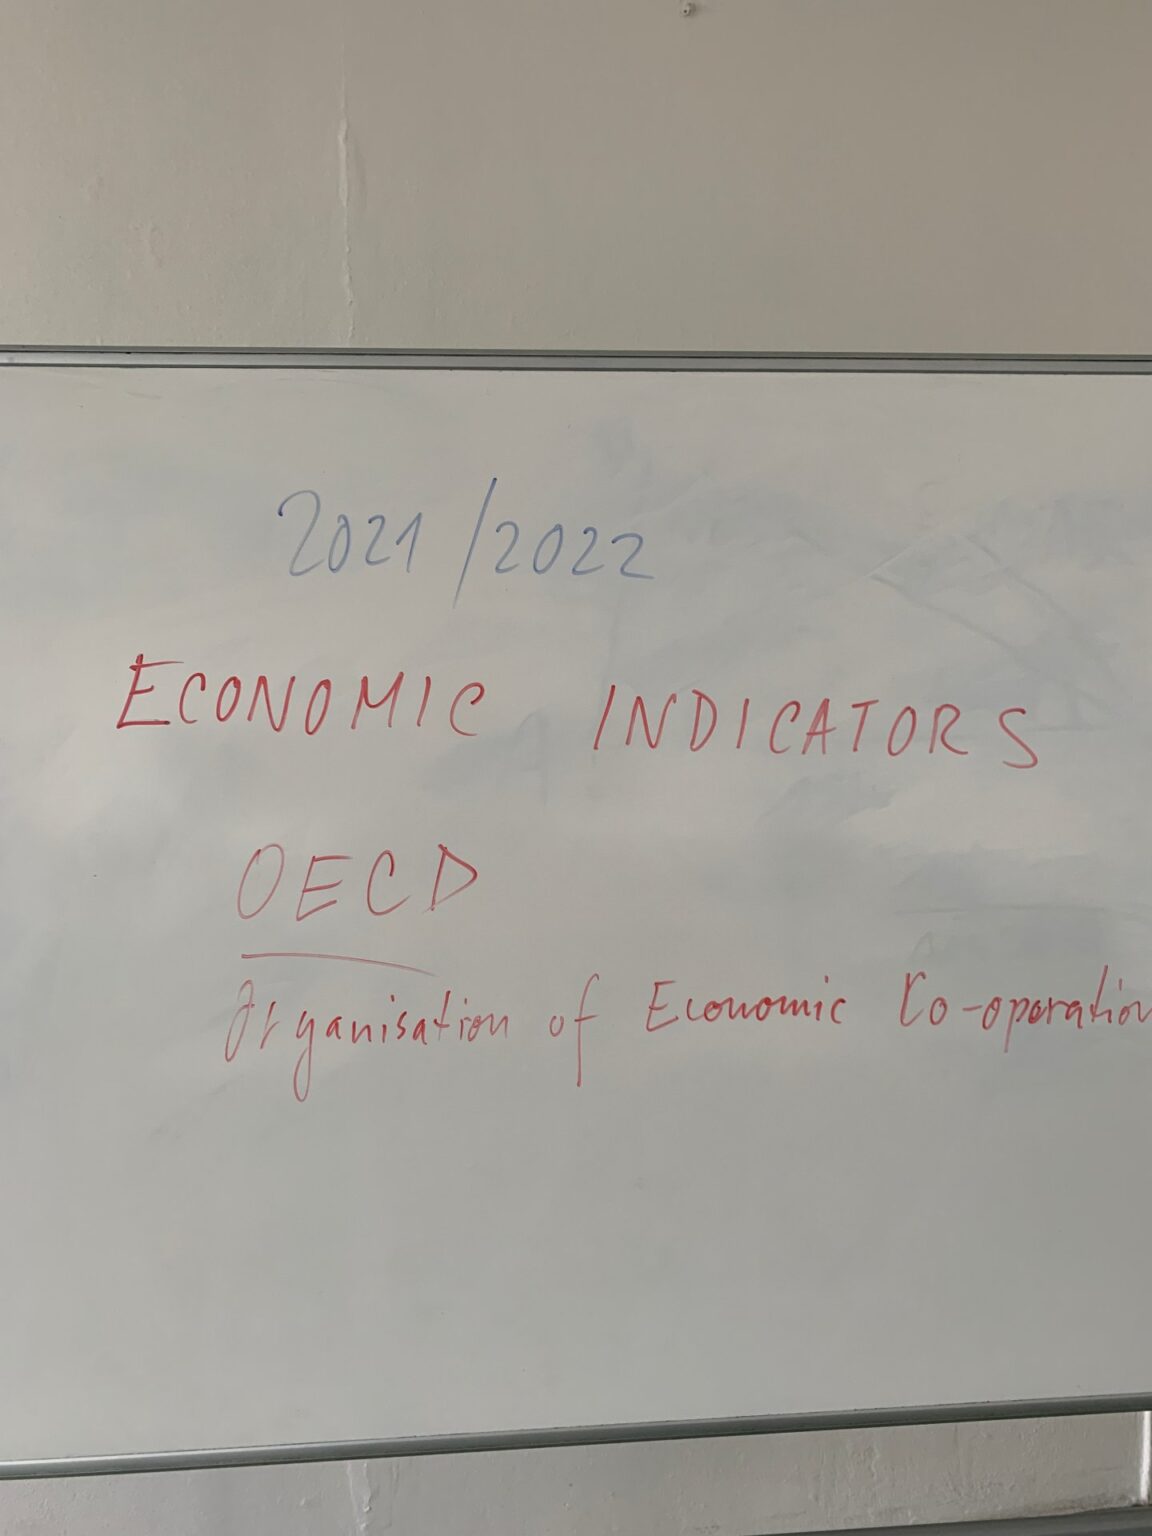 2021/2022
ECONOMIC INDICATORS
OECD
Organisation of Economic Co-operation